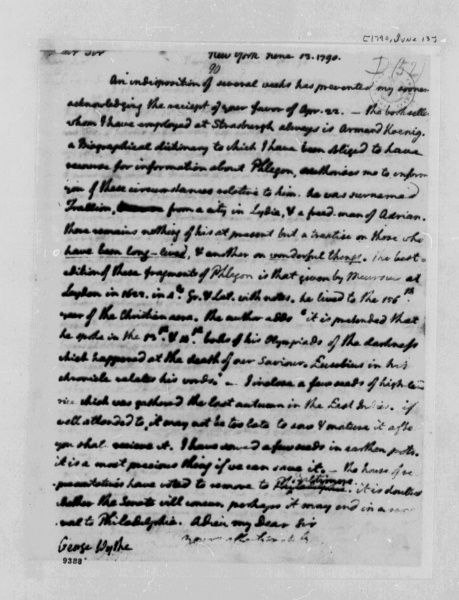 [1790, June 13]
Dear Sir New York June 13. 1790.
90
I (52)
An indisposition of several weeks has prevented my sooner
acknoleging the reciept of your favor of Apr. 22. – the bookseller
whom I have employed at Strasburgh always is Armand Koenig.
a Biographical dictionary to which I have been obliged to have
recourse for information about Phlegon, authorises me to inform
you of these circumstances relative to him. he was surnamed
Trallian, from a city in Lydia, & a freed man of Adrian.
there remains nothing of his at present but a treatise on those who
have been long-lived, & another on wonderful things. the best
edition of these fragments of Phlegon is that given by Meursius at
Leyden in 1622. in 4to. Gr. & Lat. with notes. he lived to the 156th
year of the Christian aera. the author adds "it is pretended that
he spoke in the 13th. & 14th. books of his Olympiads of the darkness
which happened at the death of our Saviour. Eusebius in his
chronicle relates his words." – I inclose a few seeds of high-land
rice which was gathered the last autumn in the East Indies. if
well attended to, it may not be too late to sow & mature it after
you shall recieve it. I have sowed a few seeds in earthen pots.
it is a most precious thing if we can save it. – the house of re
presentatives have voted to remove to Baltimore. it is doubtful
whether the Senate will concur. perhaps it may end in a remo
val to Philadelphia. Adieu my Dear Sir
your affectionately
George Wythe
9388